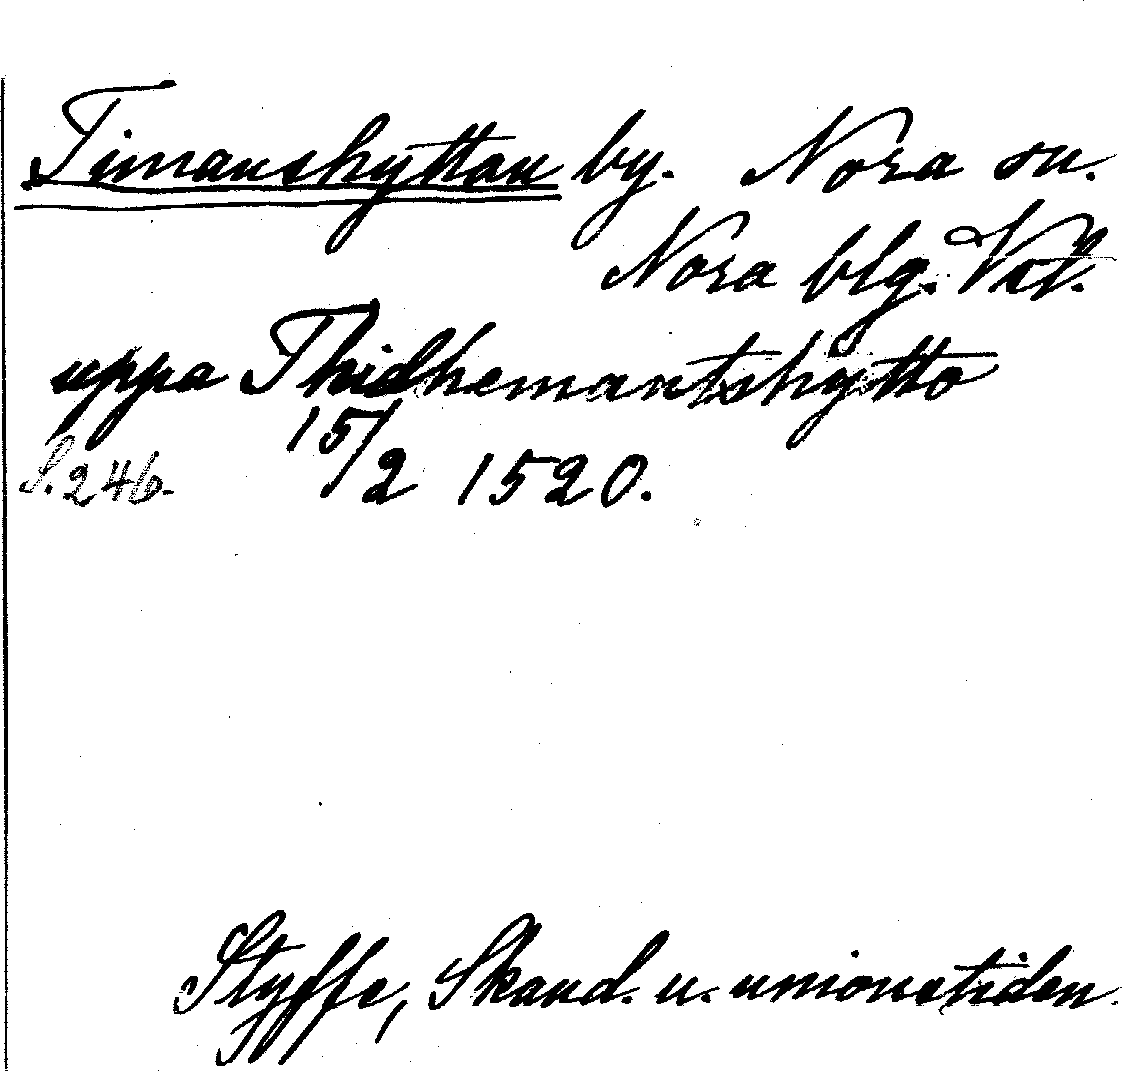 Timanshyttan by. Nora sn.
Nora blg. Vstl.
uppa Thidhemantshytto
S. 246. 15/2 1520.
Styffe, Skand. u. unionstiden.